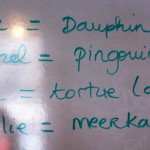 = Dauphin
= pingouin
= tortue
lie = meerka